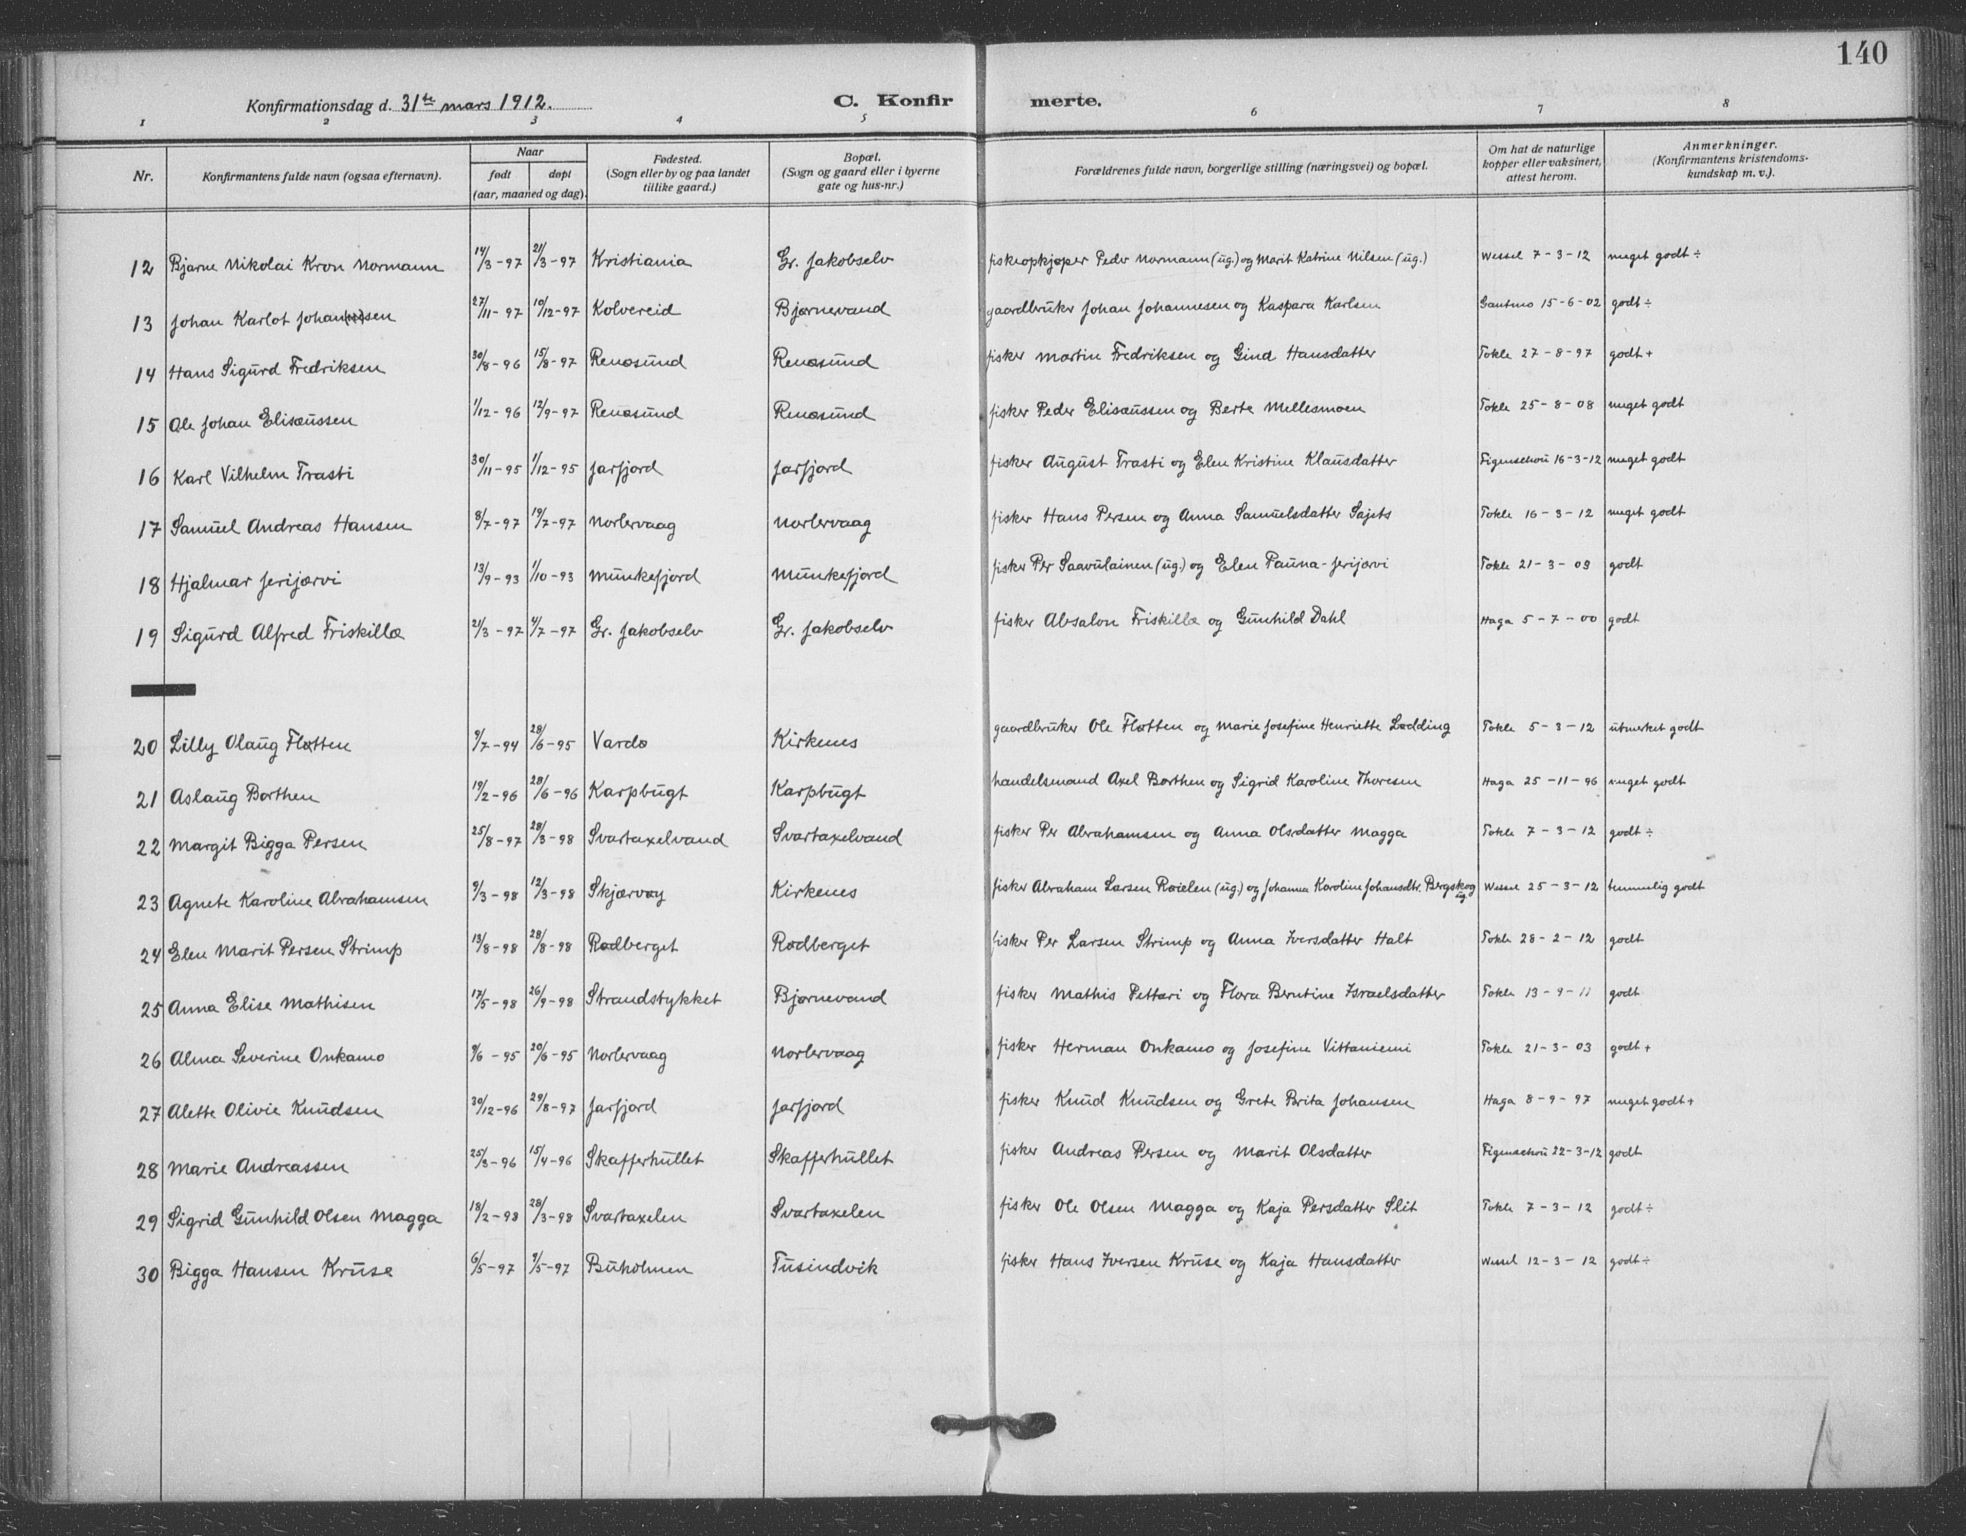 140
Konfirmationsdag d. 31te mars 1912. C. Konfirmerte.
1 2 3 4 5 6 7 8
Nr. Konfirmantens fulde navn (ogsaa efternavn). Naar født døpt (aar, maaned og dag). Fødested. (Sogn eller by og paa landet tillike gaard.) Bopæl. (Sogn og gaard eller i byerne gate og hus-nr.) Forældrenes fulde navn, borgerlige stilling (næringsvei) og bopæl. Om hat de naturlige kopper eller vaksinert, attest herom. Anmerkninger. (Konfirmantens kristendoms-kundskap m. v.).
12 Bjarne Nikolai Kron Normann 14/3-97 21/3-97 Kristiania Gr. Jakobselv fiskeopkjøper Peder Normann (ug.) og Marit Katrine Nilsen (ug.) Wessel 7-3-12 meget godt ÷
13 Johan Karlot Johan(ne)sen 27/11-97 10/12-97 Kolvereid Bjørnevand gaardbruker Johan Johannesen og Kaspara Karlsen 15-6-02 godt ÷
14 Hans Sigurd Fredriksen 30/8-96 15/8-97 Renøsund Renøsund fisker Martin Fredriksen og Gind Hansdatter Tokle 27-8-97 godt +
15 Ole Johan Elisæussen 1/12-96 12/9-97 Renøsund Renøsund fisker Peder Elisæussen og Berte Mellesmoen Tokle 25-8-08 meget godt
16 Karl Vilhelm Trasti 30/11-95 1/12-95 Jarfjord Jarfjord fisker August Trasti og Elen Kristine Klausdatter Figenschou 16-3-12 meget godt
17 Samuel Andreas Hansen 8/7-97 19/7-97 Norlervaag Norlervaag fisker Hans Persen og Anna Samuelsdatter Sajets Tokle 16-3-12 meget godt
18 Hjalmar Jerijærvi 13/9-93 1/10-93 Munkefjord Munkefjord fisker Per Saavulainen (ug.) og Elen Pauna-Jerijærvi Tokle 21-3-09 godt
19 Sigurd Alfred Friskillæ 21/3-97 4/7-97 Gr. Jakobselv Gr. Jakobselv fisker Absalon Friskillæ og Gunhild Dahl Haga 5-7-00 godt
20 Lilly Olaug Fløtten 9/7-94 28/6-95 Vardø Kirkenes gaardbruker Ole Fløtten og Marie Josefine Henriette Lødding Tokle 5-3-12 utmerket godt
21 Aslaug Borthen 19/2-96 28/6-96 Karpbugt Karpbugt handelsmand Axel Borthen og Sigrid Karoline Thoresen Haga 25-11-96 meget godt
22 Margit Bigga Persen 25/8-97 28/3-98 Svartaxelvand Svartaxelvand fisker Per Abrahamsen og Anna Olsdatter Magga Tokle 7-3-12 godt ÷
23 Agnete Karoline Abrahamsen 9/3-98 12/3-98 Skjærvøy Kirkenes fisker Abraham Larsen Røielen (ug.) og Johanna Karoline Johansdtr. Bergskog ug. Wessel 25-3-12 temmelig godt
24 Elen Marit Persen Strimp 13/8-98 28/8-98 Rødberget Rødberget fisker Per Larsen Strimp og Anna Iversdatter Halt Tokle 28-2-12 godt
25 Anna Elise Mathisen 17/5-98 26/9-98 Strandstykket Bjørnevand fisker Mathis Pettari og Flora Berntine Israelsdatter Tokle 13-9-11 godt
26 Alma Severine Onkamo 9/6-95 20/6-95 Norlervaag Norlervaag fisker Herman Onkamo og Josefine Vittaniemi Tokle 21-3-03 godt +
27 Alette Olivie Knudsen 30/12-96 29/8-97 Jarfjord Jarfjord fisker Knud Knudsen og Grete Brita Johansen Haga 8-9-97 meget godt +
28 Marie Andreassen 25/3-96 15/4-96 Skafferhullet Skafferhullet fisker Andreas Persen og Marit Olsdatter Figenschou 22-3-12 godt
29 Sigrid Gunhild Olsen Magga 18/2-98 28/3-98 Svartaxelen Svartaxelen fisker Ole Olsen Magga og Kaja Persdatter Slit Tokle 7-3-12 godt ÷
30 Bigga Hansen Kruse 6/5-97 9/5-97 Buholmen Tusindvik fisker Hans Iversen Kruse og Kaja Hansdatter Wessel 12-3-12 godt ÷